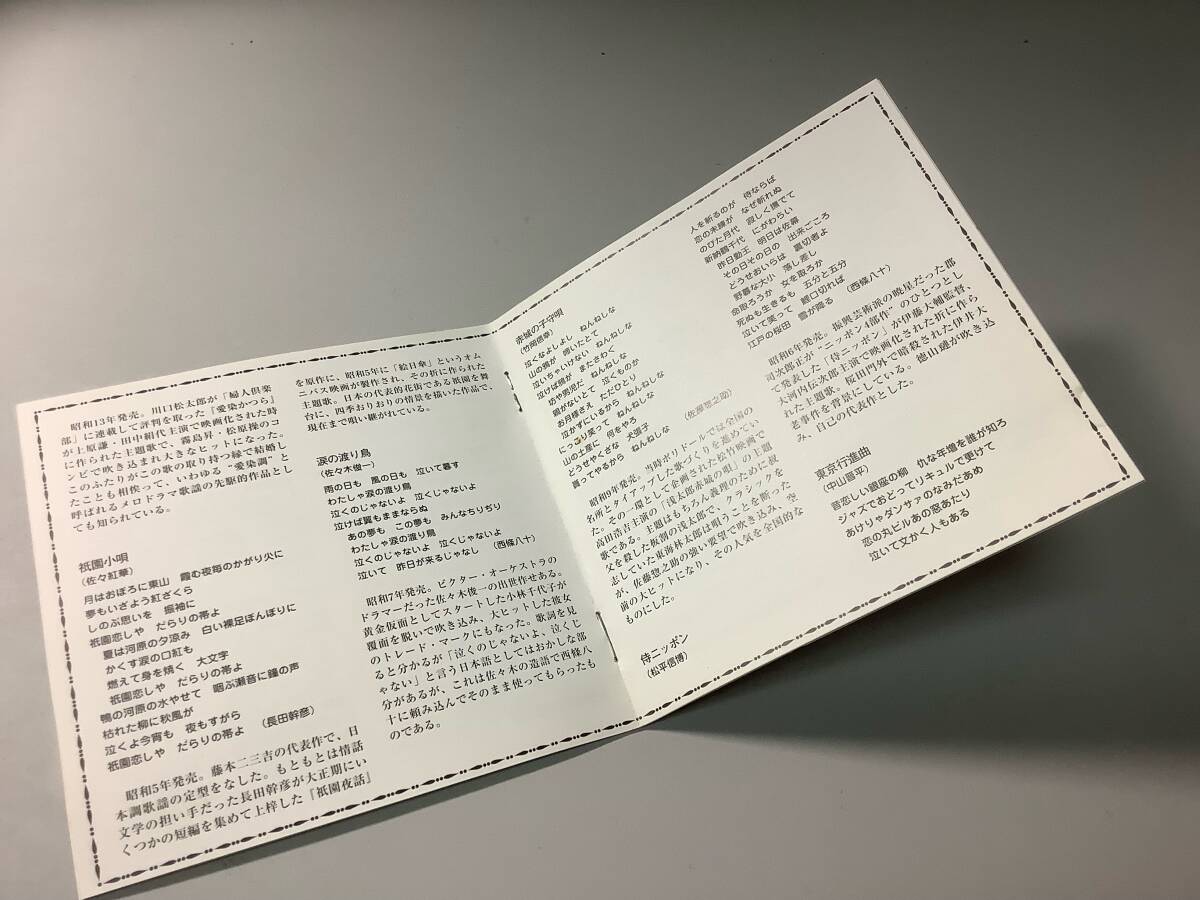 昭和13年発売。川口松太郎が「婦人倶楽
部」に連載して評判を取った『愛染かつら』
が上原謙・田中絹代主演で映画化された時
に作られた主題歌で、霧島昇・松原操のコ
ンビで吹き込まれ大きなヒットになった。
このふたりがこの歌の取り持つ縁で結婚し
たことも相俟って、いわゆる“愛染調”と
呼ばれるメロドラマ歌謡の先駆的作品とし
ても知られている。
祇園小唄
(佐々紅華)
月はおぼろに東山　霞む夜毎のかがり火に
夢もいざよう紅ざくら
しのぶ思いを　振袖に
祇園恋しや　だらりの帯よ
夏は河原の夕涼み　白い裸足ぼんぼりに
かくす涙の口紅も
燃えて身を焼く　大文字
祇園恋しや　だらりの帯よ
鴨の河原の水やせて　咽ぶ瀬音に鐘の声
枯れた柳に秋風が
泣くよ今宵も　夜もすがら
祇園恋しや　だらりの帯よ　(長田幹彦)
昭和5年発売。藤本二三吉の代表作で、日
本調歌謡の定型をなした。もともとは情話
文学の担い手だった長田幹彦が大正期にい
くつかの短編を集めて上梓した『祇園夜話』
を原作に、昭和5年に「絵日傘」というオム
ニバス映画が製作され、その折に作られた
主題歌。日本の代表的花街である祇園を舞
台に、四季おりおりの情景を描いた作品で、
現在まで唄い継がれている。
涙の渡り鳥
(佐々木俊一)
雨の日も　風の日も　泣いて暮す
わたしゃ涙の渡り鳥
泣くのじゃないよ　泣くじゃないよ
泣けば翼もままならぬ
あの夢も　この夢も　みんなちりぢり
わたしゃ涙の渡り鳥
泣くのじゃないよ　泣くじゃないよ
泣いて　昨日が来るじゃなし　(西條八十)
昭和7年発売。ビクター・オーケストラの
ドラマーだった佐々木俊一の出世作せある。
黄金仮面としてスタートした小林千代子が
覆面を脱いで吹き込み、大ヒットした彼女
のトレード・マークにもなった。歌詞を見
ると分かるが「泣くのじゃないよ、泣くじ
ゃない」と言う日本語としてはおかしな部
分があるが、これは佐々木の造語で西條八
十に頼み込んでそのまま使ってもらったも
のである。
赤城の子守唄
(竹岡信幸)
泣くなよしよし　ねんねしな
山の鴉が　啼いたとて
泣いちゃいけない　ねんねしな
泣けば鴉が　またさわぐ
坊や男児だ　ねんねしな
親がないとて　泣くものか
お月様さえ　ただひとり
泣かずにいるから　ねんねしな
にっこり笑って　ねんねしな
山の土産に　何をやろ
どうせやくざな　犬張子
貰ってやるから　ねんねしな
(佐藤惣之助)
昭和9年発売。当時ポリドールでは全国の
名所とタイアップした歌づくりを進めてい
た。その一環として企画された松竹映画で
高田浩吉主演の「浅太郎赤城の唄」の主題
歌である。主題はもちろん義理のために叔
父を殺した板割の浅太郎で、クラシックを
志していた東海林太郎は唄うことを断った
が、佐藤惣之助の強い要望で吹き込み、空
前の大ヒットになり、その人気を全国的な
ものにした。
侍ニッポン
(松平信博)
人を斬るのが　侍ならば
恋の未練が　なぜ斬れぬ
のびた月代　寂しく撫でて
新納鶴千代　にがわらい
昨日勤王　明日は佐幕
その日その日の　出来ごころ
どうせおいらは　裏切者よ
野暮な大小　落し差し
命取ろうか　女を取ろか
死ぬも生きるも　五分と五分
泣いて笑って　鯉口切れば
江戸の桜田　雪が降る　(西條八十)
昭和6年発売。振興芸術派の暁星だった郡
司次郎正が“ニッポン4部作”のひとつとし
て発表した「侍ニッポン」が伊藤大輔監督、
大河内伝次郎主演で映画化された折に作ら
れた主題歌。桜田門外で暗殺された伊井大
老事件を背景にしている。徳山璉が吹き込
み、自己の代表作とした。
東京行進曲
(中山晋平)
昔恋しい銀座の柳　仇な年増を誰が知ろ
ジャズでおどってリキュルで更けて
あけりゃダンサァのなみだあめ
恋の丸ビルあの窓あたり
泣いて文かく人もある